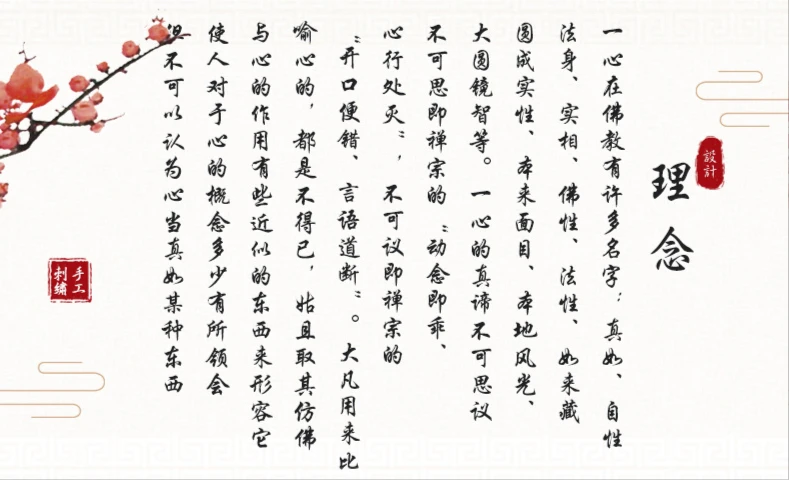 設計
理念
一心在佛教有许多名字：真如、自性
法身、实相、佛性、法性、如来藏
圆成实性、本来面目、本地风光、
大圆镜智等。一心的真谛不可思议
不可思即禅宗的“动念即乖、
心行处灭”，不可议即禅宗的
“开口便错、言语道断”。大凡用来比
喻心的，都是不得已，姑且取其仿佛
与心的作用有些近似的东西来形容它
使人对于心的概念多少有所领会
但不可以认为心当真如某种东西
手工
刺繡